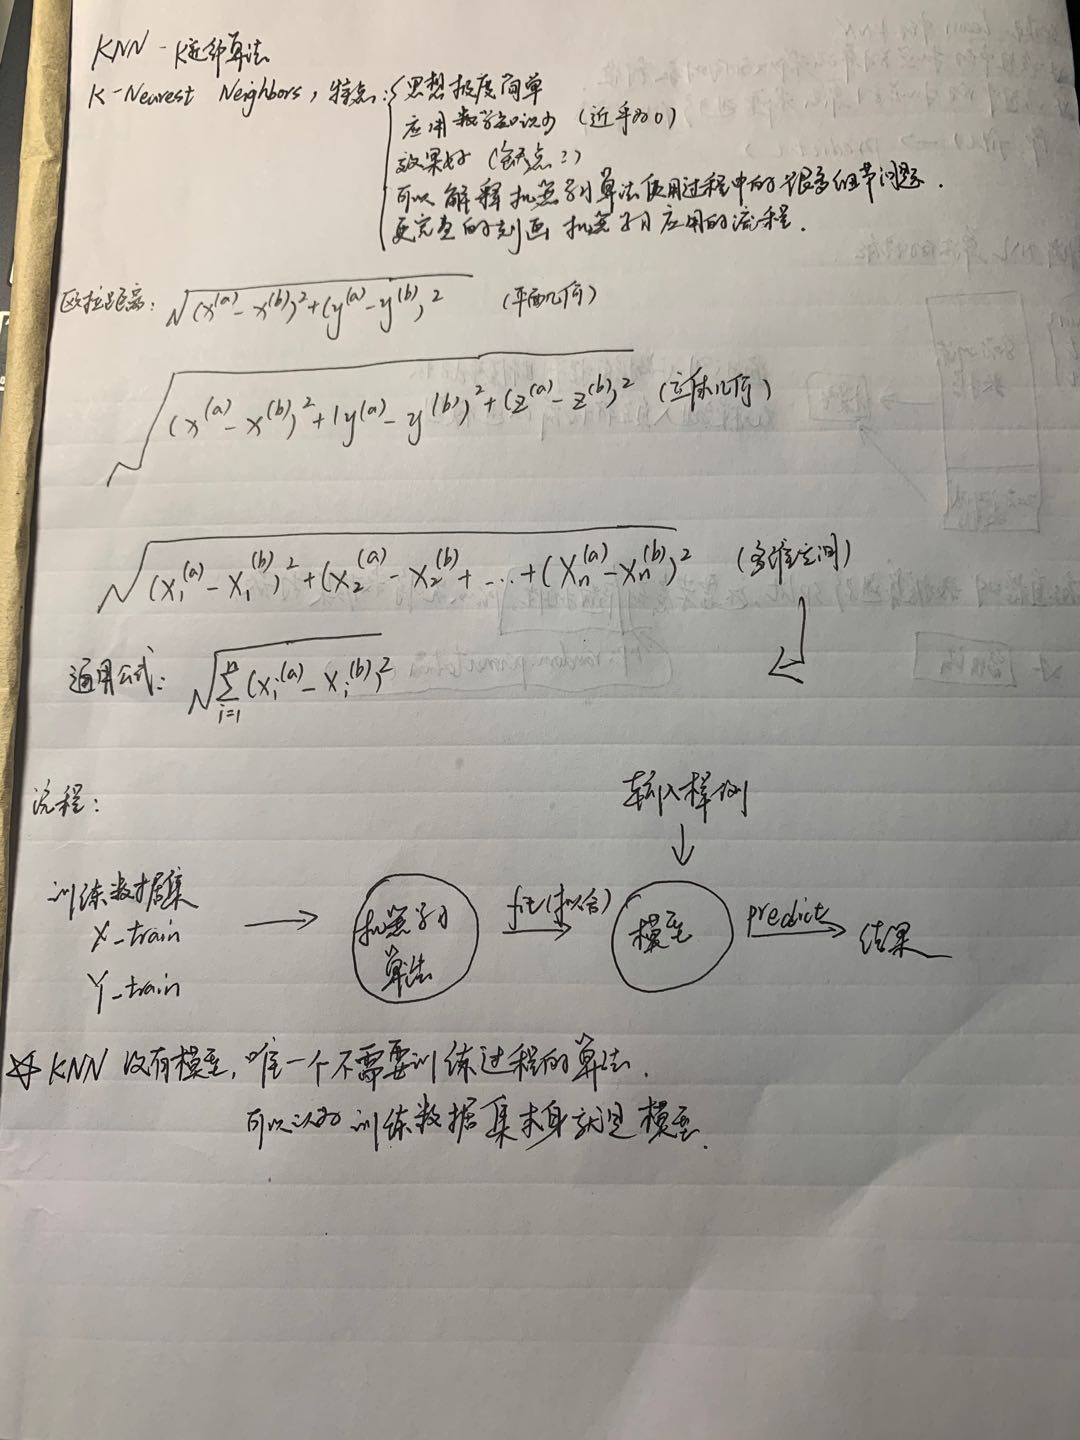 KNN - K近邻算法
K-Nearest Neighbors, 特点:{ 思想极度简单
应用数学知识少 (近乎为0)
效果好 (缺点?)
可以解释机器学习算法使用过程中的很多细节问题.
更完整的刻画机器学习应用的流程.
欧拉距离: √(x^(a) - x^(b))^2 + (y^(a) - y^(b))^2 (平面几何)
√(x^(a) - x^(b))^2 + (y^(a) - y^(b))^2 + (z^(a) - z^(b))^2 (立体几何)
√(X_1^(a) - X_1^(b))^2 + (X_2^(a) - X_2^(b) + ... + (X_n^(a) - X_n^(b))^2 (多维空间)
通用公式: √∑_{i=1}^{n} (X_i^(a) - X_i^(b))^2
流程:
输入样例
↓
训练数据集 → 机器学习算法 fit(拟合)→ 模型 predict→ 结果
X_train
Y_train
☆ KNN 没有模型, 唯一个不需要训练过程的算法.
可以认为训练数据集本身就是模型.